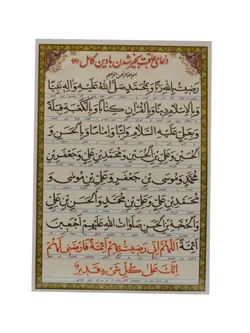 دعای عاقبت بخیر شدن با دین کامل
بسم الله الرحمن الرحیم
رَضِیتُ بِاللّٰهِ رَبًّا وَبِمُحَمَّدٍ صَلَّی اللّٰهُ عَلَیْهِ وَاٰلِهِ نَبِیًّا
وَبِالْاِسْلَامِ دِینًا وَبِالْقُرْاٰنِ کِتَابًا وَبِالْکَعْبَةِ قِبْلَةً
وَبِعَلِیٍّ عَلَیْهِ السَّلَامُ وَلِیًّا وَاِمَامًا وَبِالْحَسَنِ وَ
الْحُسَیْنِ وَعَلِیِّ بْنِ الْحُسَیْنِ وَمُحَمَّدِ بْنِ عَلِیٍّ وَجَعْفَرِ بْنِ
مُحَمَّدٍ وَمُوسَی بْنِ جَعْفَرٍ وَعَلِیِّ بْنِ مُوسٰی وَ
مُحَمَّدِ بْنِ عَلِیٍّ وَعَلِیِّ بْنِ مُحَمَّدٍ وَالْحَسَنِ بْنِ عَلِیٍّ
وَالْحُجَّةِ بْنِ الْحَسَنِ صَلَوَاتُ اللّٰهِ عَلَیْهِمْ اَجْمَعِینَ
اَئِمَّةً اَللّٰهُمَّ اِنِّی رَضِیتُ بِهِمْ اَئِمَّةً فَارْضَنِی لَهُمْ
اِنَّکَ عَلٰی کُلِّ شَیْءٍ قَدِیرٌ